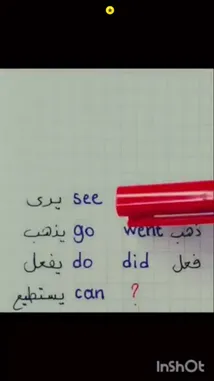 يرى see
يذهب go went ذهب
يفعل do did فعل
يستطيع can ?
InShOt